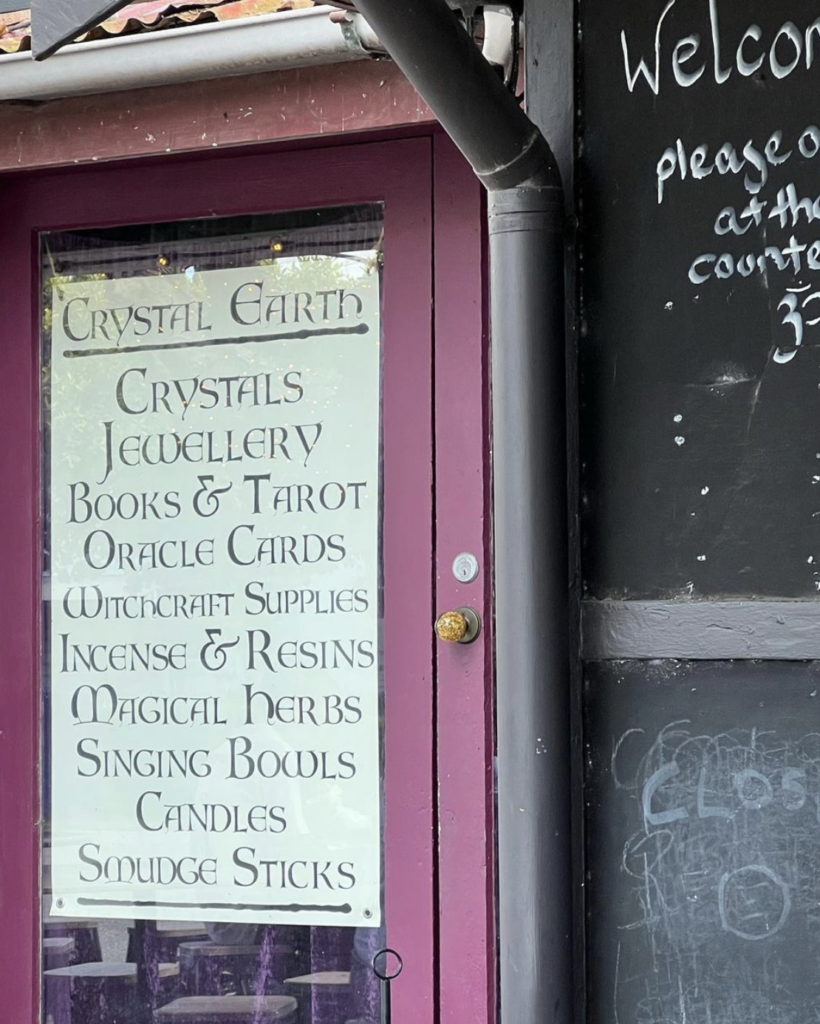 CRYSTAL EARTH
CRYSTALS
JEWELLERY
BOOKS & TAROT
ORACLE CARDS
WITCHCRAFT SUPPLIES
INCENSE & RESINS
MAGICAL HERBS
SINGING BOWLS
CANDLES
SMUDGE STICKS
Welcom
please o
at the
counte
CLOS